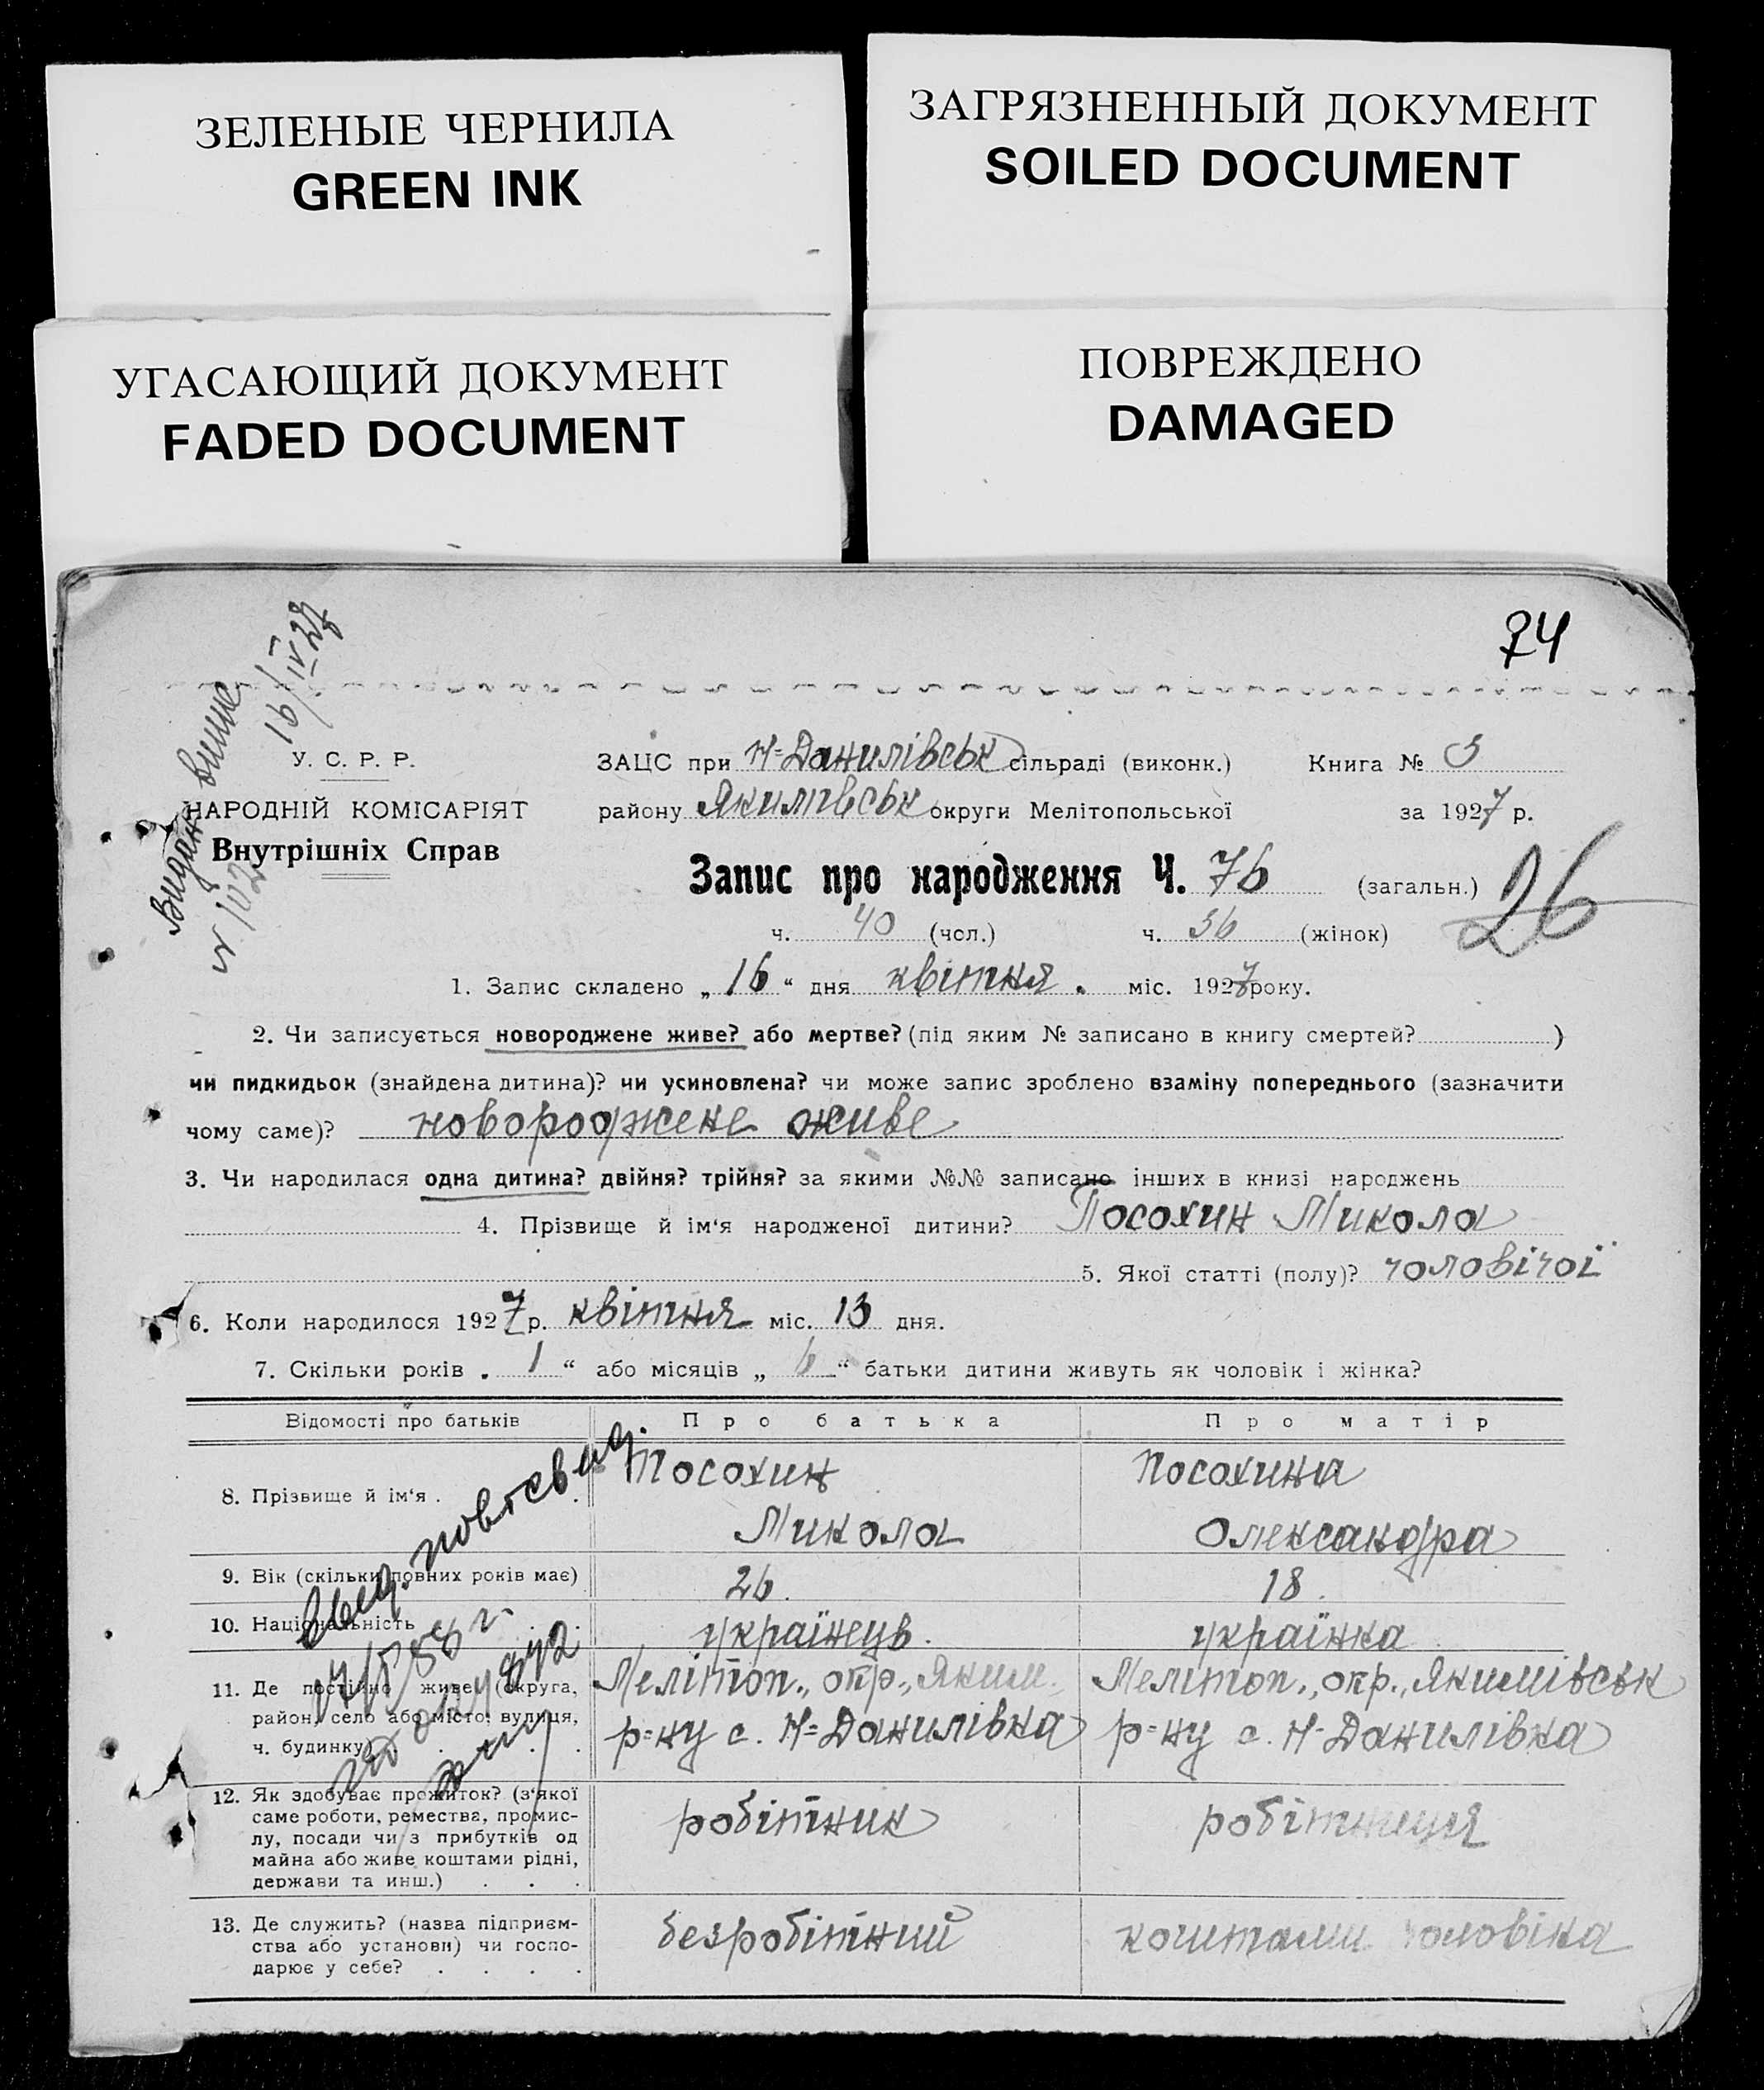 ЗЕЛЕНЫЕ ЧЕРНИЛА
GREEN INK
ЗАГРЯЗНЕННЫЙ ДОКУМЕНТ
SOILED DOCUMENT
УГАСАЮЩИЙ ДОКУМЕНТ
FADED DOCUMENT
ПОВРЕЖДЕНО
DAMAGED
74
Видан
16/IV 27
У. С. Р. Р.
НАРОДНІЙ КОМІСАРІЯТ
Внутрішніх Справ
ЗАЦС при Н=Данилівськ сільраді (виконк.) Книга №
району Якимівськ округи Мелітопольської за 1927 р.
Запис про народження Ч. 76 (загальн.) 26
ч. 40 (чол.) ч. 36 (жінок)
1. Запис складено „16“ дня квітня. міс. 1927 року.
2. Чи записується новороджене живе? або мертве? (під яким № записано в книгу смертей? )
чи пидкидьок (знайдена дитина)? чи усиновлена? чи може запис зроблено взаміну попереднього (зазначити
чому саме)? новороджене живе
3. Чи народилася одна дитина? двійня? трійня? за якими №№ записано інших в книзі народжень
4. Прізвище й ім‘я народженої дитини? Посохин Микола
5. Якої статті (полу)? чоловічої
6. Коли народилося 1927 р. квітня міс. 13 дня.
7. Скільки років „1“ або місяців „6“ батьки дитини живуть як чоловік і жінка?
Відомості про батьків Про батька Про матір
8. Прізвище й ім‘я . Посохин Посохина
Микола Олександра
9. Вік (скільки повних років має) 26. 18.
10. Національність українець. українка
11. Де постійно живе (округа, Меліттоп., окр., Яким. Мелітоп., окр., Якимівськ
район, село або місто, вулиця, р=ну с. Н=Данилівка р=ну с. Н-Данилівка
ч. будинку)
12. Як здобуває прожиток? (з‘якої
саме роботи, ремества, промис-
лу, посади чи з прибутків од робітник робітниця
майна або живе коштами рідні,
держави та инш.)
13. Де служить? (назва підприєм-
ства або установи) чи госпо- безробітний коштами чоловіка
дарює у себе?
выд. повт. свид.